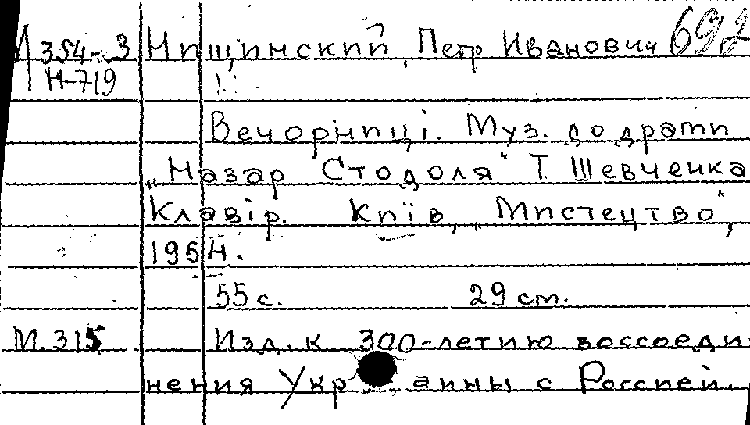 И 354-3 Нищинский, Петр Иванович 692
Н-719
Вечорниці. Муз. до драми
„Назар Стодоля" Т. Шевченка
Клавір. Київ, „Мистецтво",
1954.
55 с. 29 cm.
М.315 Изд. к 300-летию воссоеди
нения Украины с Россией.